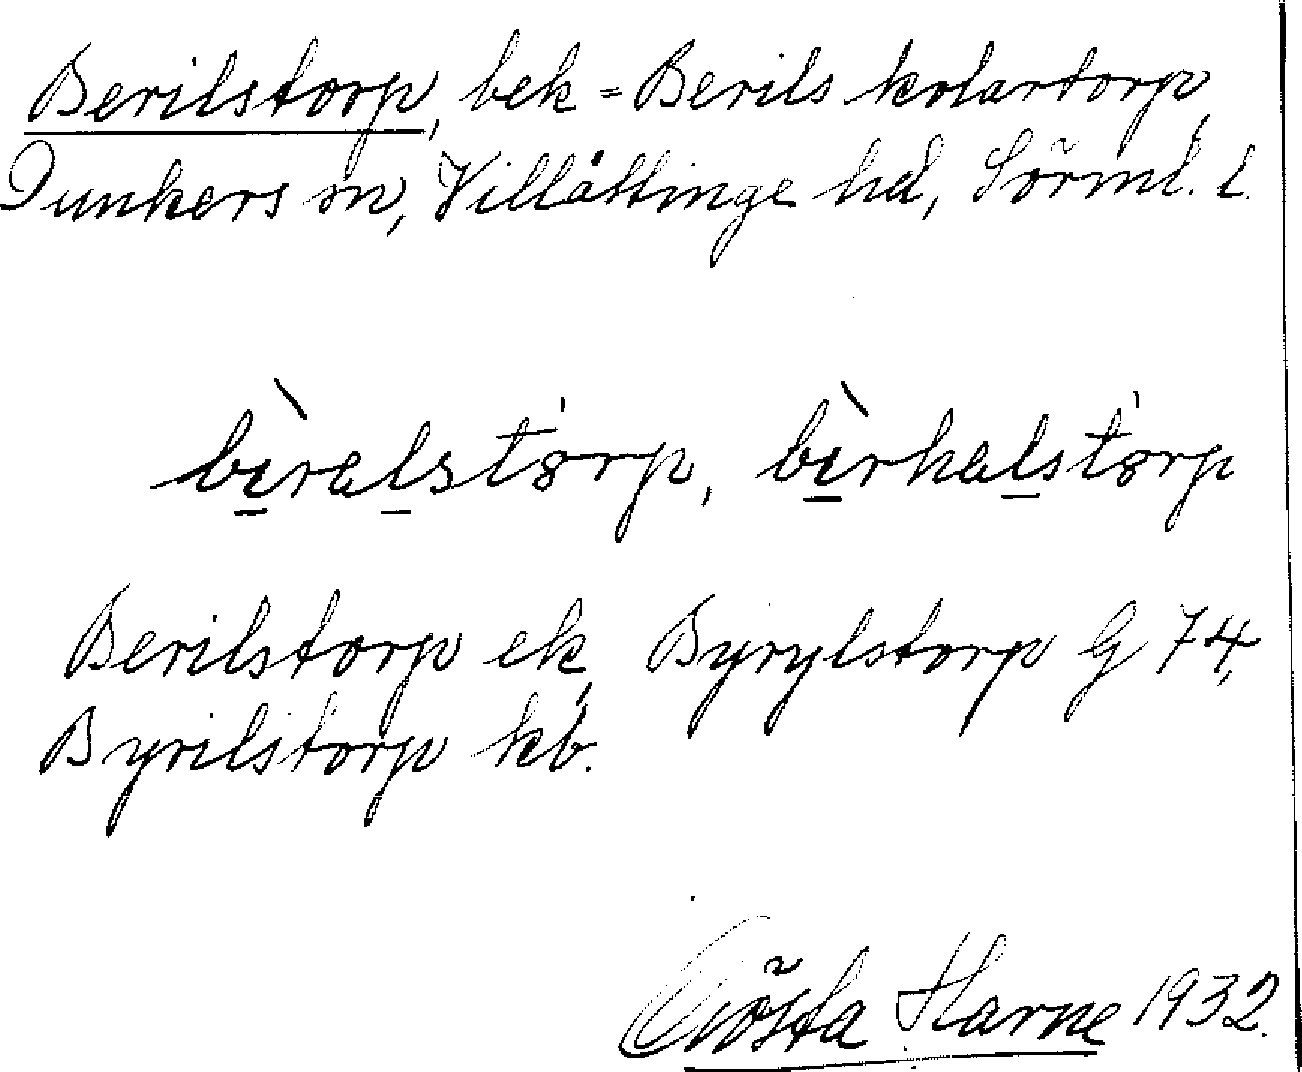 Berilstorp, bek = Berils kolartorp,
Dunkers sn, Villåttinge hd, Sörml. l.
bìrəlstòrp, bìrkəlstòrp
Berilstorp ek, Byrylstorp G 74,
Byrilstorp kb.
Gösta Harne 1932.